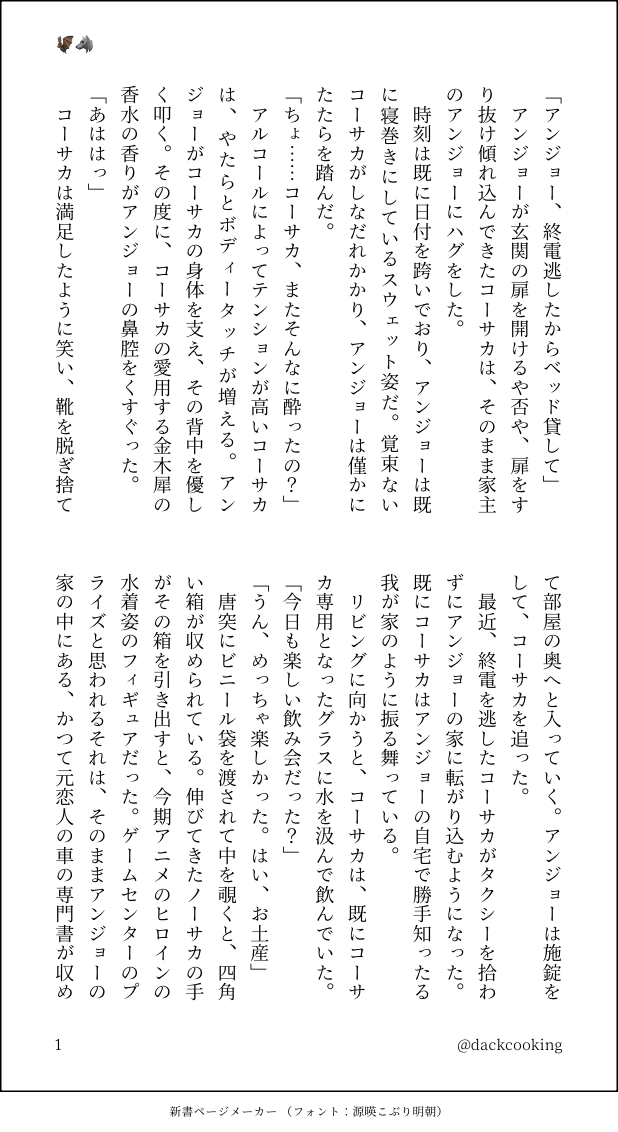 「アンジョー、終電逃したからベッド貸して」
　アンジョーが玄関の扉を開けるや否や、扉をす
り抜け傾れ込んできたコーサカは、そのまま家主
のアンジョーにハグをした。
　時刻は既に日付を跨いでおり、アンジョーは既
に寝巻きにしているスウェット姿だ。覚束ない
コーサカがしなだれかかり、アンジョーは僅かに
たたらを踏んだ。
「ちょ……コーサカ、またそんなに酔ったの？」
　アルコールによってテンションが高いコーサカ
は、やたらとボディータッチが増える。アン
ジョーがコーサカの身体を支え、その背中を優し
く叩く。その度に、コーサカの愛用する金木犀の
香水の香りがアンジョーの鼻腔をくすぐった。
「あははっ」
　コーサカは満足したように笑い、靴を脱ぎ捨て
て部屋の奥へと入っていく。アンジョーは施錠を
して、コーサカを追った。
　最近、終電を逃したコーサカがタクシーを拾わ
ずにアンジョーの家に転がり込むようになった。
既にコーサカはアンジョーの自宅で勝手知ったる
我が家のように振る舞っている。
　リビングに向かうと、コーサカは、既にコーサ
カ専用となったグラスに水を汲んで飲んでいた。
「今日も楽しい飲み会だった？」
「うん、めっちゃ楽しかった。はい、お土産」
　唐突にビニール袋を渡されて中を覗くと、四角
い箱が収められている。伸びてきたノーサカの手
がその箱を引き出すと、今期アニメのヒロインの
水着姿のフィギュアだった。ゲームセンターのプ
ライズと思われるそれは、そのままアンジョーの
家の中にある、かつて元恋人の車の専門書が収め
1
@dackcooking
新書ページメーカー（フォント：源暎こぶり明朝）